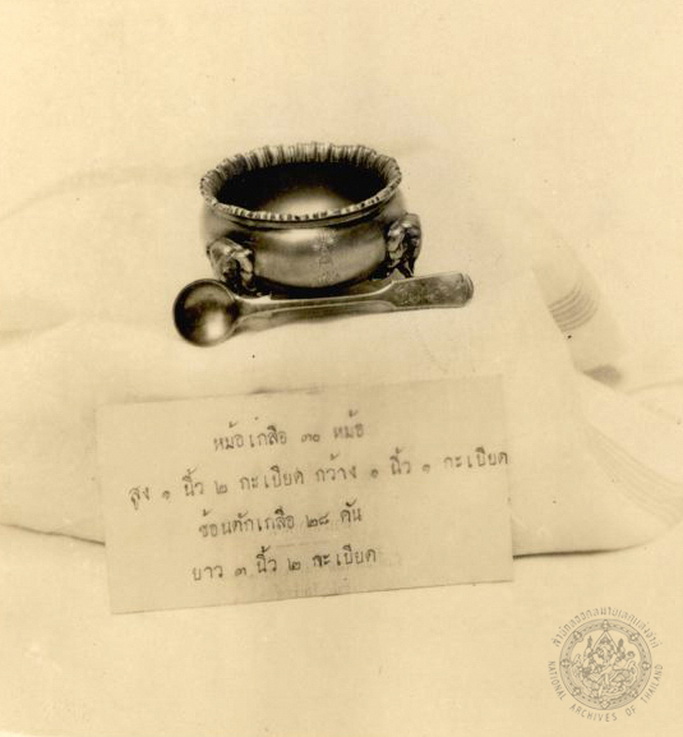 หม้อเกลือ ๓๐ หม้อ
สูง ๑ นิ้ว ๒ กะเบียด กว้าง ๑ นิ้ว ๑ กะเบียด
ช้อนตักเกลือ ๒๘ คัน
ยาว ๓ นิ้ว ๒ กะเบียด
สำนักหอจดหมายเหตุแห่งชาติ
NATIONAL ARCHIVES OF THAILAND